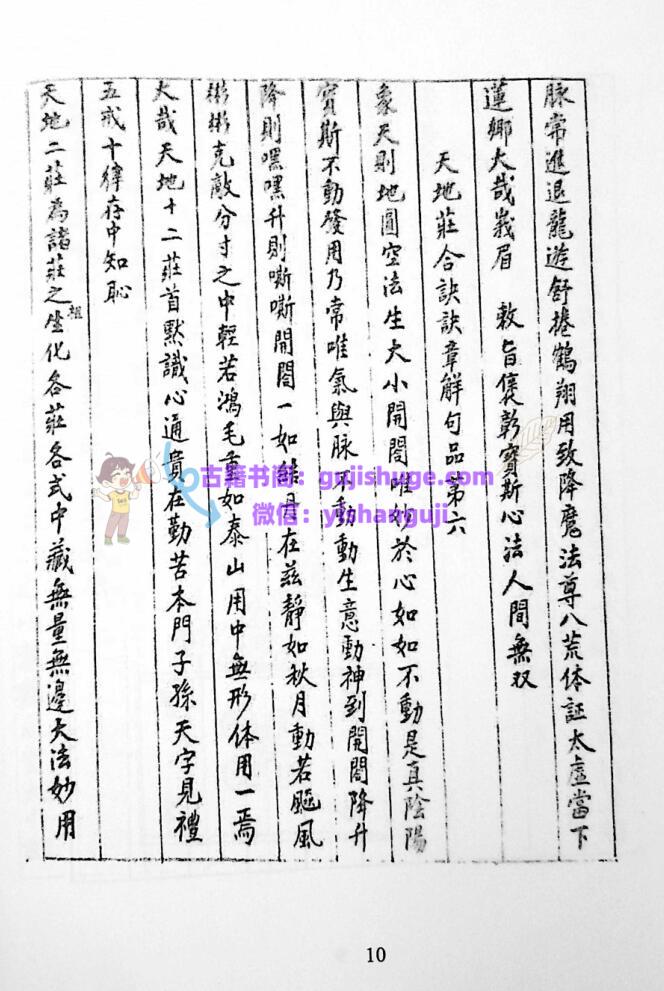 脉常進退龍遊舒捲鶴翔用致降魔法尊八荒体証太虛當下
蓮鄉大哉峩眉　敕旨褒彰寶斯心法人間無双
天地莊合訣訣章解句品第六
象天則地圓空法生大小開閤唯妙於心如如不動是真陰陽
寶斯不動發用乃常唯氣與脉不動動生意動神到開閤降升
降則嘿嘿升則嘶嘶開閤一如 月在兹靜如秋月動若颶風
彬彬克敵分寸之中輕若鴻毛重如泰山用中無形体用一焉
大哉天地十二莊首默識心通貴在勤苦本門子孫天字見禮
五戒十律存中知恥
天地二莊為諸莊之祖坐化各莊各式中藏無量無邊大法妙用
古籍书阁：gujishuge.com
微信：yuhanguji
10